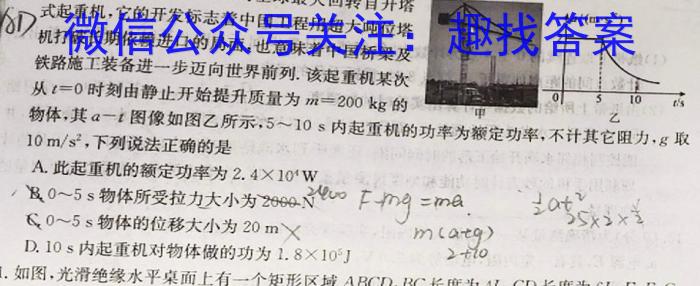 最大回转自升塔
式起重机,它的开发标志着中国工程用超大吨位塔
微信公众号关注：趣找答案
机打破长期依赖进口的局面,也意味着中国桥梁及
铁路施工装备进一步迈向世界前列.该起重机某次
从t=0时刻由静止开始提升质量为m=200 kg的
物体,其a-t图像如图乙所示,5~10 s内起重机的功率为额定功率,不计其它阻力,g取
10 m/s²,下列说法正确的是
A.此起重机的额定功率为2.4×10⁴W
B.0~5 s物体所受拉力大小为2000 N
2400
F-mg=ma
½at²
C.0~5 s物体的位移大小为20 m
m(a+g)
2+10
D.10 s内起重机对物体做的功为1.8×10⁵J
0
5
10
t/s
甲
乙
1.如图,光滑绝缘水平桌面上有一个矩形区域ABCD,BC长度为